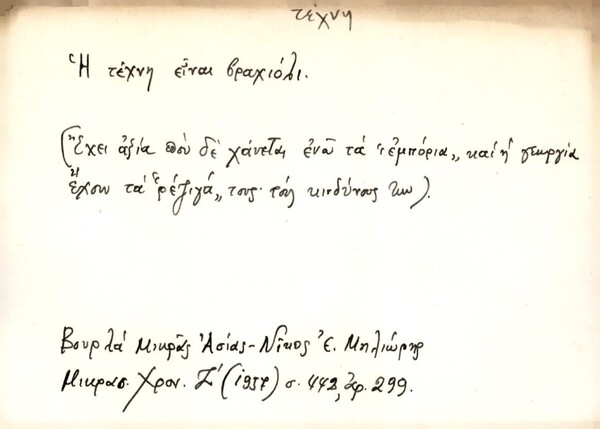 τέχνη
Ἡ τέχνη εἶναι βραχιόλι.
(Ἔχει ἀξία ποὺ δὲ χάνεται, ἐνῶ τὰ "ἐμπόρια„ καὶ ἡ γεωργία
ἔχουν τὰ "ρέζιγά„ τους· τοὺς κινδύνους των).
Βουρλὰ Μικρᾶς Ἀσίας - Νίκος Ἐ. Μηλιώρης
Μικρασ. Χρον. Ζ' (1957) σ. 442, ἀρ. 299.